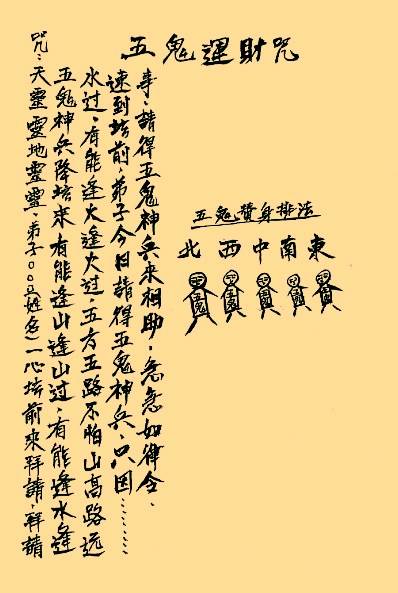 五鬼運財咒
咒：天靈靈地靈靈、弟子○○○(姓名)一心坛前來拜請、拜請
五鬼神兵降坛來有能逢山逢山过、有能逢水逢
水过、有能逢火逢火过、五方五路不怕山高路远
速到坛前、弟子今日請得五鬼神兵、只因………
事、請得五鬼神兵來相助、急急如律令、
五鬼替身排法
北西中南東
五鬼
五鬼
五鬼
五鬼
五鬼